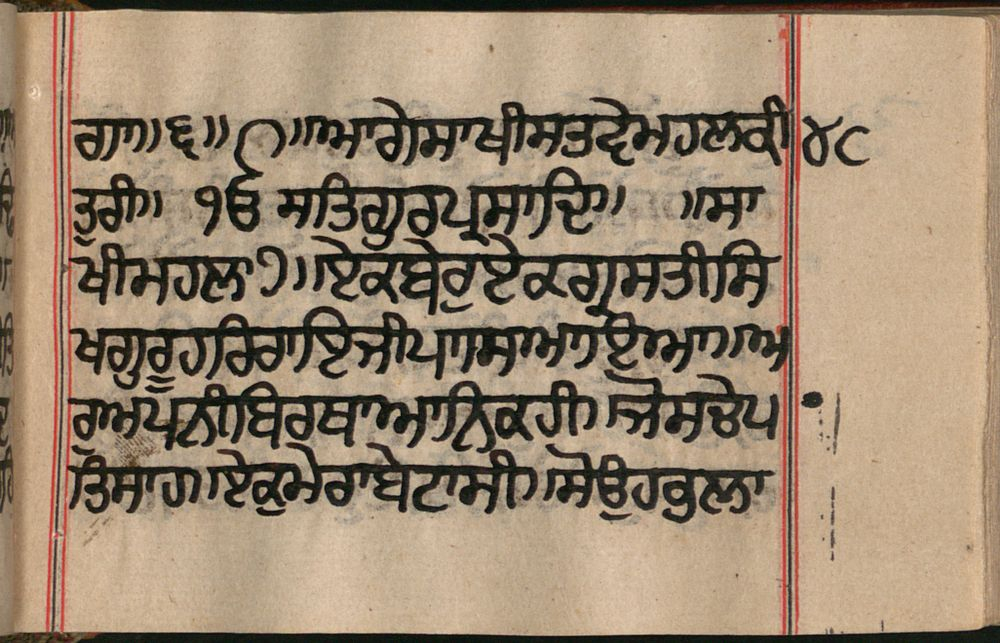 ਗਾ॥੬॥੧॥ਆਗੇਸਾਖੀਸਤਵੇਮਹਲਕੀ ੪੮
ਤੁਰੀ॥ ੧ਓ ਸਤਿਗੁਰਪ੍ਰਸਾਦਿ॥ ॥ਸਾ
ਖੀਮਹਲਾ੭॥ਏਕਬੇਰੁਏਕਗ੍ਰਸਤੀਸਿ
ਖਗੁਰੂਹਰਿਰਾਇਜੀਪਾਸਆਇਆ॥ਅ
ਰੁਅਪਨੀਬਿਰਥਾਆਨਿਕਹੀ॥ਜੋਸਚੇਪ
ਤਿਸਾਹ॥ਏਕੁਮੇਰਾਬੇਟਾਸੀ॥ਸੋਉਹਕੁਲਾ